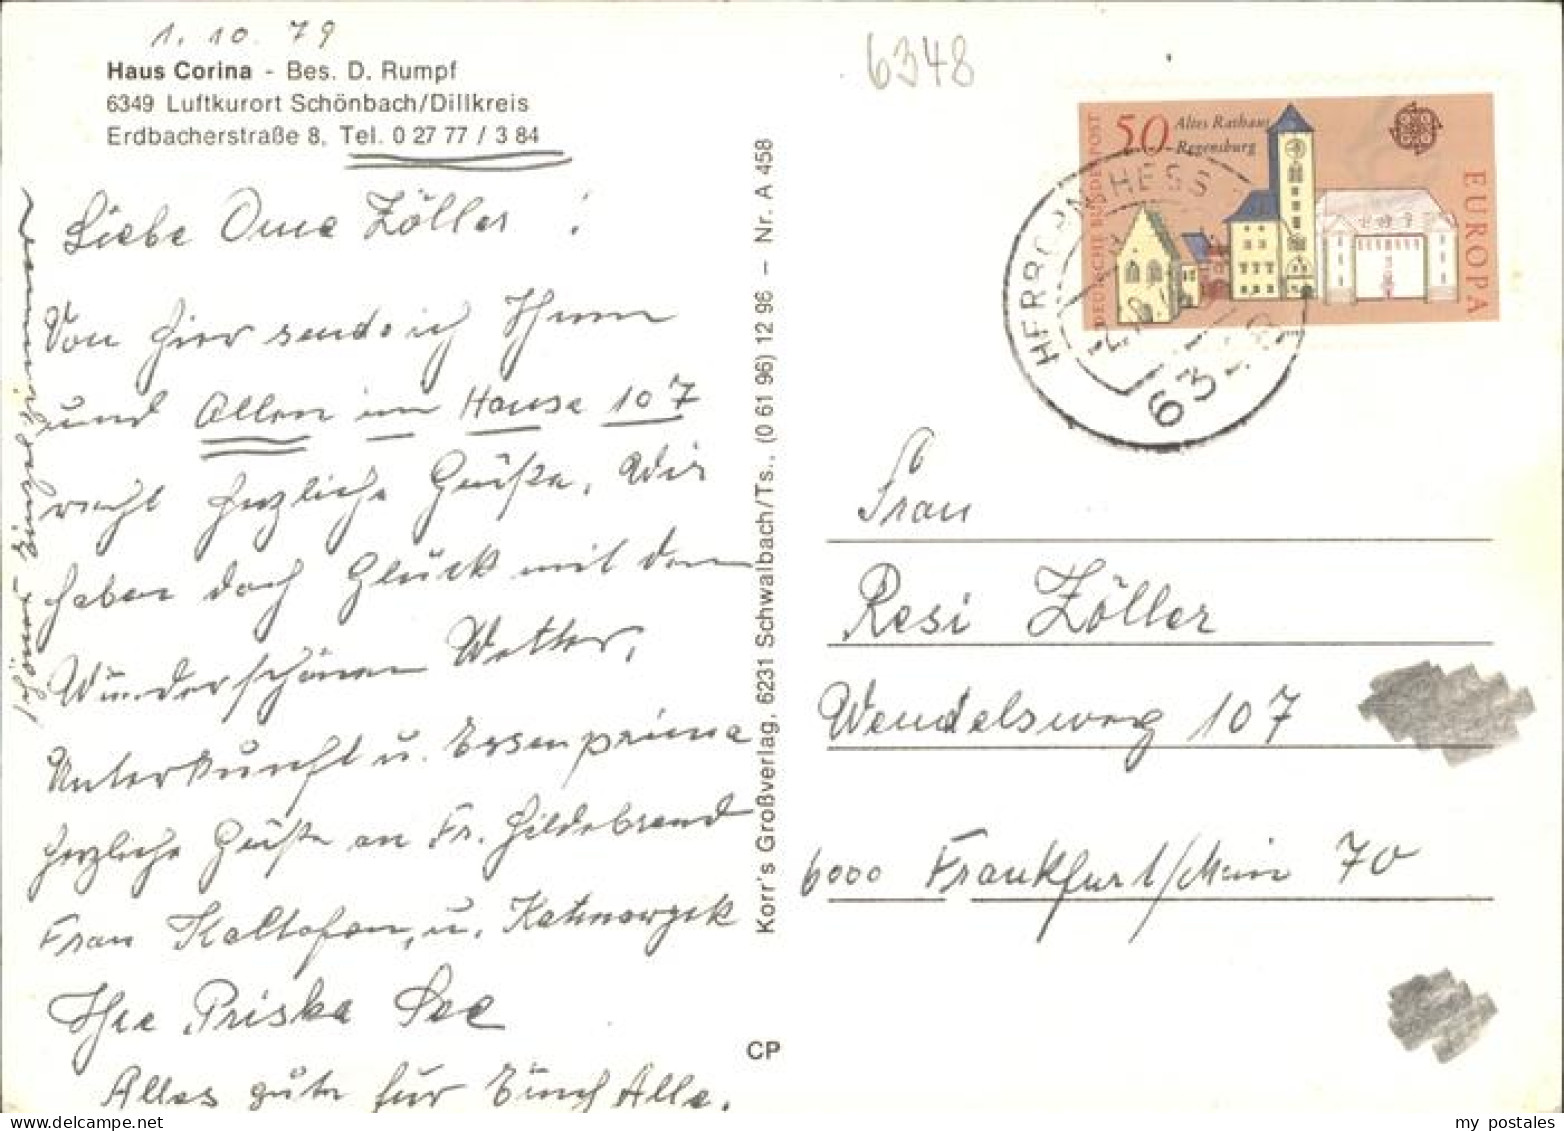 1. 10. 79
Haus Corina - Bes. D. Rumpf
6349 Luftkurort Schönbach/Dillkreis
Erdbacherstraße 8, Tel. 0 27 77 / 3 84
Liebe Oma Zöller!
Von hier sende ich Ihnen
und Allen im Hause 107
recht herzliche Grüße. Wir
haben doch Glück mit dem
Wunderschönen Wetter,
Unterkunft u. Essen prima
herzliche Grüße an Fr. Hildebrand
Frau Kaltofen, u.
Ihre Priska See
Alles gute für Euch Alle.
schönes Einzelzimmer
Korr's Großverlag, 6231 Schwalbach/Ts., (0 61 96) 12 96 – Nr. A 458
CP
6348
50 Altes Rathaus
Regensburg
DEUTSCHE BUNDESPOST
EUROPA
HERBORN, HESS
Frau
Resi Zöller
Wendelsweg 107
6000 Frankfurt/Main 70
my postales